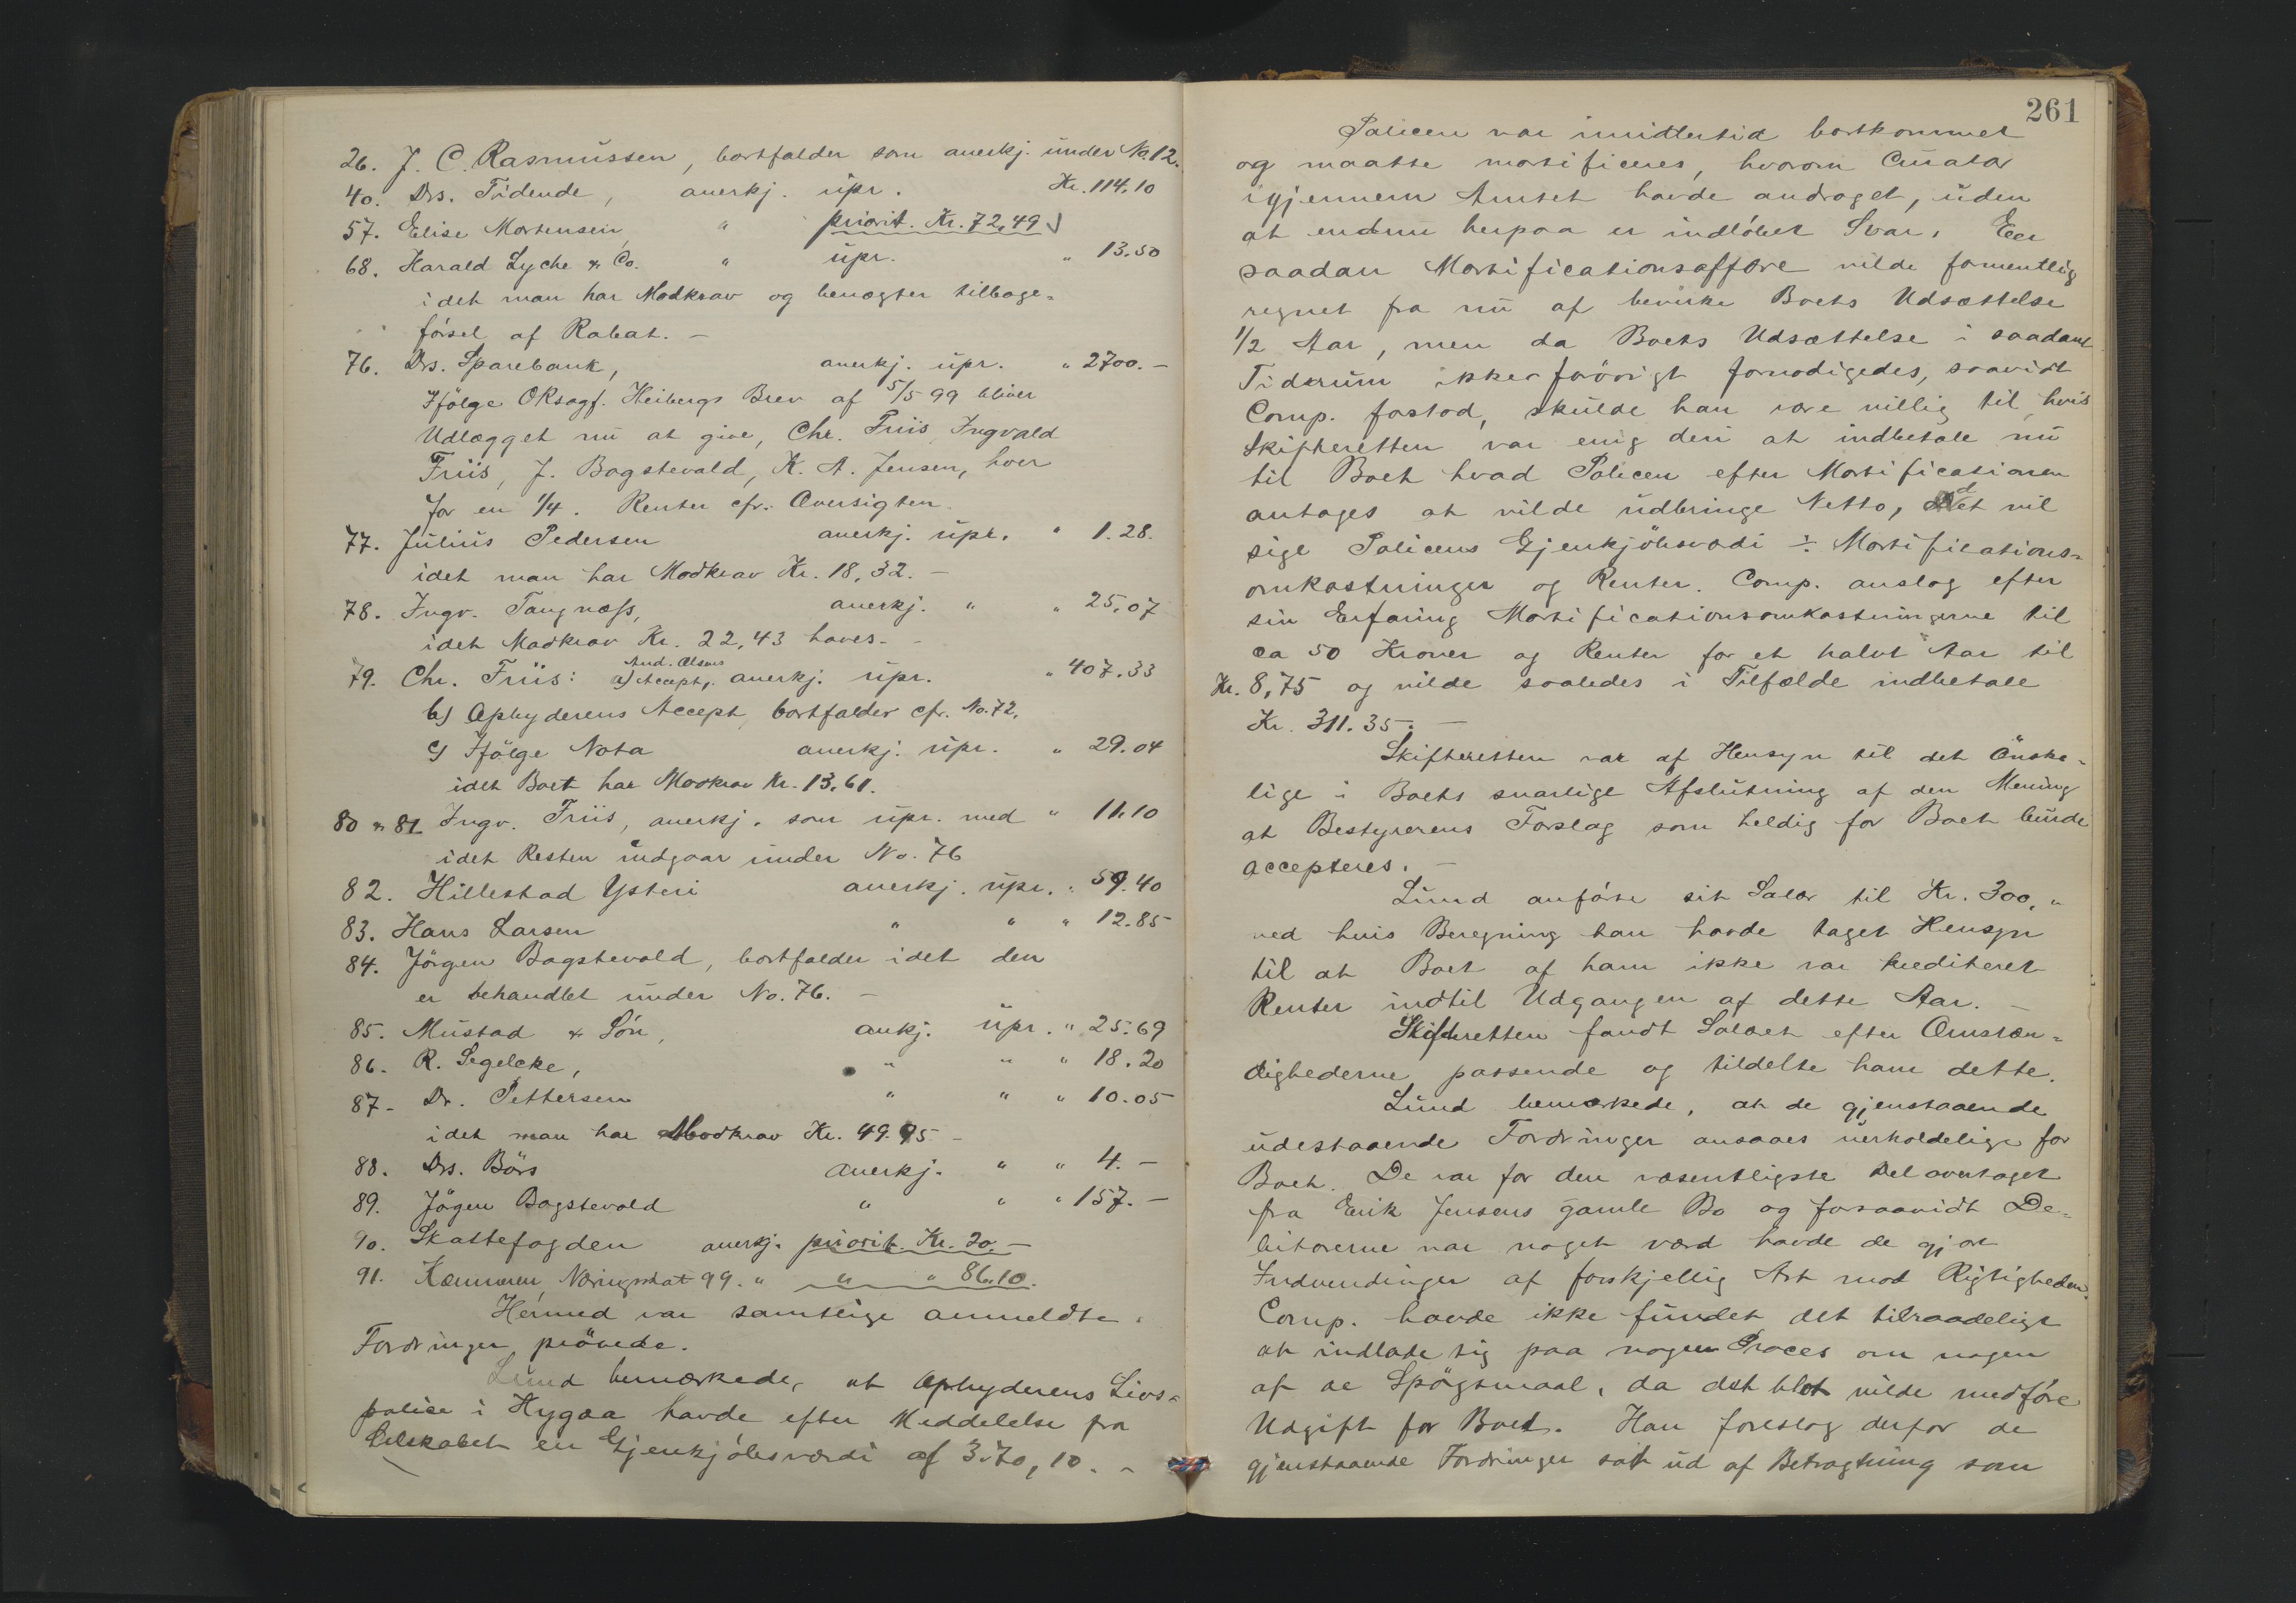 26. J. C. Rasmussen, bortfalder som anerkj. under No. 12.
40. Drs. Tidende, anerkj. upr. Kr. 114.10
57. Elise Mortensen, " priorit. Kr. 72,49
68. Harald Lyche & Co. " upr. " 13.50
idet man har Modkrav og benegter tilbage-
førsel af Rabat. —
76. Drs. Sparebank, anerkj. upr. " 2700. —
Ifølge ORsagf. Heibergs Brev af 5/5 99 bliver
Udlægget nu at give, Chr. Friis, Ingvald
Friis, J. Bagstevold, K. A. Jensen, hver
for en 1/4. Renter cfr. Oversigten
77. Julius Pedersen anerkj. upr. " 1.28.
idet man har Modkrav Kr. 18,32. —
78. Ingv. Tangnæss, anerkj. " " 25,07
idet Modkrav Kr. 22,43 haves. —
79. Chr. Friis: a) And. Olsens Accept, anerkj. upr. " 407.33
b) Ophyderens Accept, bortfalder cfr. No. 72.
c) Ifølge Nota anerkj. upr. " 29.04
idet Boet har Modkrav Kr. 13.61.
80 & 81 Ingv. Friis, anerkj. som upr. med " 11.10
idet Resten indgaar under No. 76
82. Hillestad Ysteri anerkj. upr. " 59.40
83. Hans Larsen " " " 12.85
84. Jörgen Bagstevold, bortfalder idet den
er behandlet under No. 76. —
85. Mustad & Søn, ankj. upr. " 25.69
86. R. Segelcke, " " " 18.20
87- Dr. Pettersen " " " 10.05
idet man har Modkrav Kr. 49.95 —
88. Drs. Börs anerkj. " " 4. —
89. Jögen Bagstevold " " " 157. —
90. Skattefogden anerkj. priorit. Kr. 20. —
91. Kæmneren, Næringsskat 99. " " " 86.10.
Hermed var samtlige anmeldte
Fordringer prövede.
Lund bemærkede, at Ophyderens Livs-
police i Hygæa havde efter Meddelelse fra
Selskabet en Gjenkjöbsværdi af 370,10. —
261
Policen var imidlertid bortkommet
og maatte mortificeres, hvorom Curator
igjennem Amtet havde andraget, uden
at endnu herpaa er indløbet Svar. Een
saadan Mortificationsaffære vilde formentlig
regnet fra nu af bevirke Boets Udsættelse
1/2 Aar, men da Boets Udsættelse i saadant
Tidsrum ikke forövrigt fornödigedes, saavidt
Comp. forstod, skulde han være villig til, hvis
Skifteretten var enig deri at indbetale nu
til Boet hvad Policen efter Mortificationen
antages at vilde udbringe Netto, det vil
sige Policens Gjenkjöbsværdi ÷ Mortifications-
omkostninger og Renter. Comp. anslog efter
sin Erfaring Mortificationsomkostningerne til
ca 50 Kroner og Renter for et halvt Aar til
Kr. 8,75 og vilde saaledes i Tilfælde indbetale
Kr. 311.35. —
Skifteretten var af Hensyn til det Önske-
lige i Boets snarlige Afslutning af den Mening
at Bestyrerens Forslag som heldig for Boet burde
accepteres. —
Lund anførte sit Salær til Kr. 300, "
ved hvis Beregning han havde taget Hensyn
til at Boet af ham ikke var krediteret
Renter indtil Udgangen af dette Aar. —
Skifteretten fandt Salæret efter Omstæn-
dighederne passende og tildelte ham dette.
Lund bemærkede, at de gjenstaaende
udestaaende Fordringer ansaaes uerholdelige for
Boet. De var for den væsentligste Del overtaget
fra Erik Jensens gamle Bo og forsaavidt De-
bitorerne var noget værd havde de gjort
Indvendinger af forskjellig Art mod Rigtigheden.
Comp. havde ikke fundet det tilraadeligt
at indlade sig paa nogen Proces om nogen
af de Spörgsmaal, da det blot vilde medføre
Udgift for Boet. Han foreslog derfor de
gjenstaaende Fordringer sat ud af Betragtning som